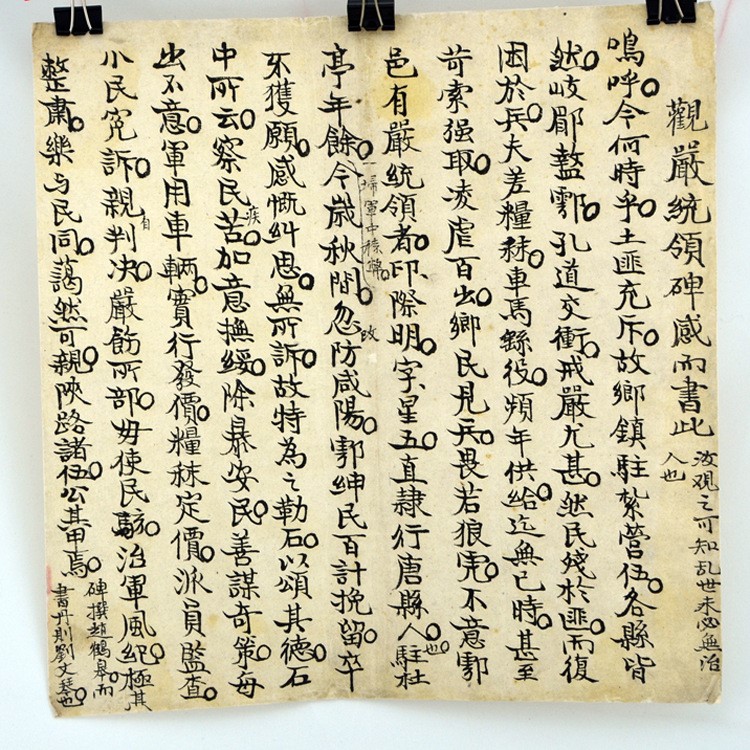 觀嚴統領碑感而書此 汝觀之可知乱世未必無治
人也
嗚呼。今何時乎。土匪充斥。故鄉鎮駐紮營伍。各縣皆
然。岐郿盩鄠。孔道交衝。戒嚴尤甚。然民殘於匪。而復
困於兵。夫差糧秣。車馬繇役。頻年供給。迄無已時。甚至
苛索强取。凌虐百出。鄉民見兵。畏若狼虎。不意鄠
邑有嚴統領者。印際明。字星五。直隷行唐縣人也。駐杜
一掃軍中積弊。
亭年餘。今歲秋間。忽改防咸陽。鄠紳民百計挽留。卒
不獲願。感慨糾思。無所訴。故特為之勒石。以頌其德。石
中所云。察民疾苦。加意撫綏。除暴安民。善謀奇策。每
出不意。軍用車輛。實行發價。糧秣定價。派員監查。
小民冤訴。親自判决。嚴飭所部。毋使民駭。治軍風紀。極其
整肅。樂与民同。藹然可親。陝路諸伍。公其甲焉。
碑撰趙鶴皋。而
書丹則劉文琴也。